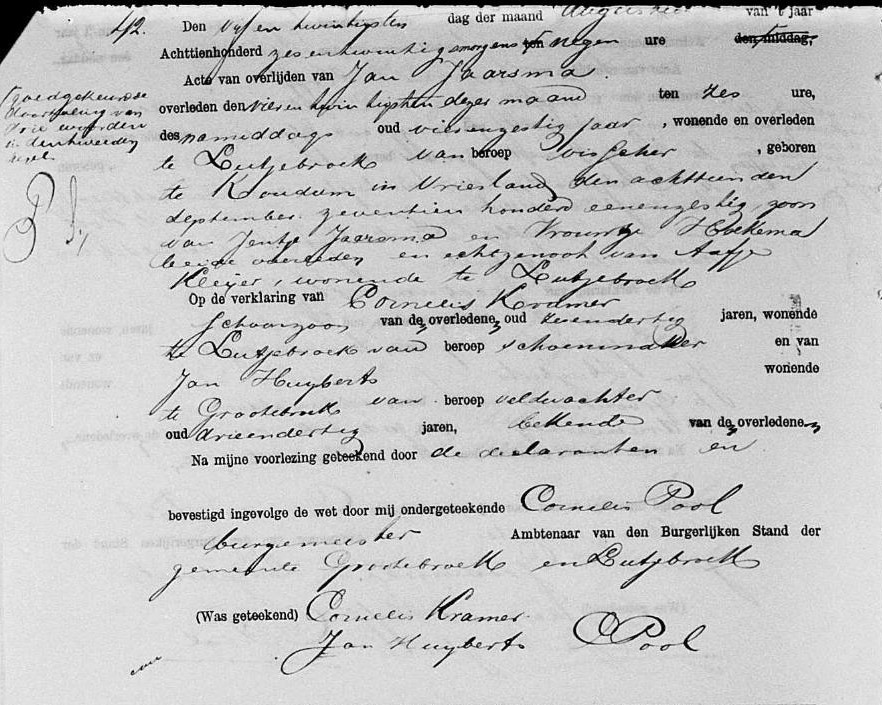 42. Den vijf en twintigsten dag der maand Augustus van 't jaar
Achttienhonderd zes en twintig smorgens ten negen ure den/middag,
Acte van overlijden van Jan Jaarsma
overleden den vier en twintigsten dezer maand ten zes ure,
des namiddags oud vierenzestig jaar, wonende en overleden
te Lutjebroek van beroep visscher, geboren
te Koudum in Vriesland, den achttienden
september zeventien honderd eenenzestig, zoon
van Jentje Jaarsma en Vrouwtje Hoekema
beide overleden en echtgenoot van Aafje
Kleijer, wonende te Lutjebroek
Op de verklaring van Cornelis Kramer
schoonzoon van de overledene, oud zesendertig jaren, wonende
te Lutjebroek van beroep schoenmaker en van
Jan Huyberts wonende
te Grootebroek van beroep veldwachter
oud drieendertig jaren, bekende van de overledene
Na mijne voorlezing geteekend door de declaranten en
bevestigd ingevolge de wet door mij ondergeteekende Cornelis Pool
burgemeester Ambtenaar van den Burgerlijken Stand der
gemeente Grootebroek en Lutjebroek
(Was geteekend) Cornelis Kramer
Jan Huyberts C Pool
goedgekeurd de
doorhaling van
drie woorden
in den tweeden
regel